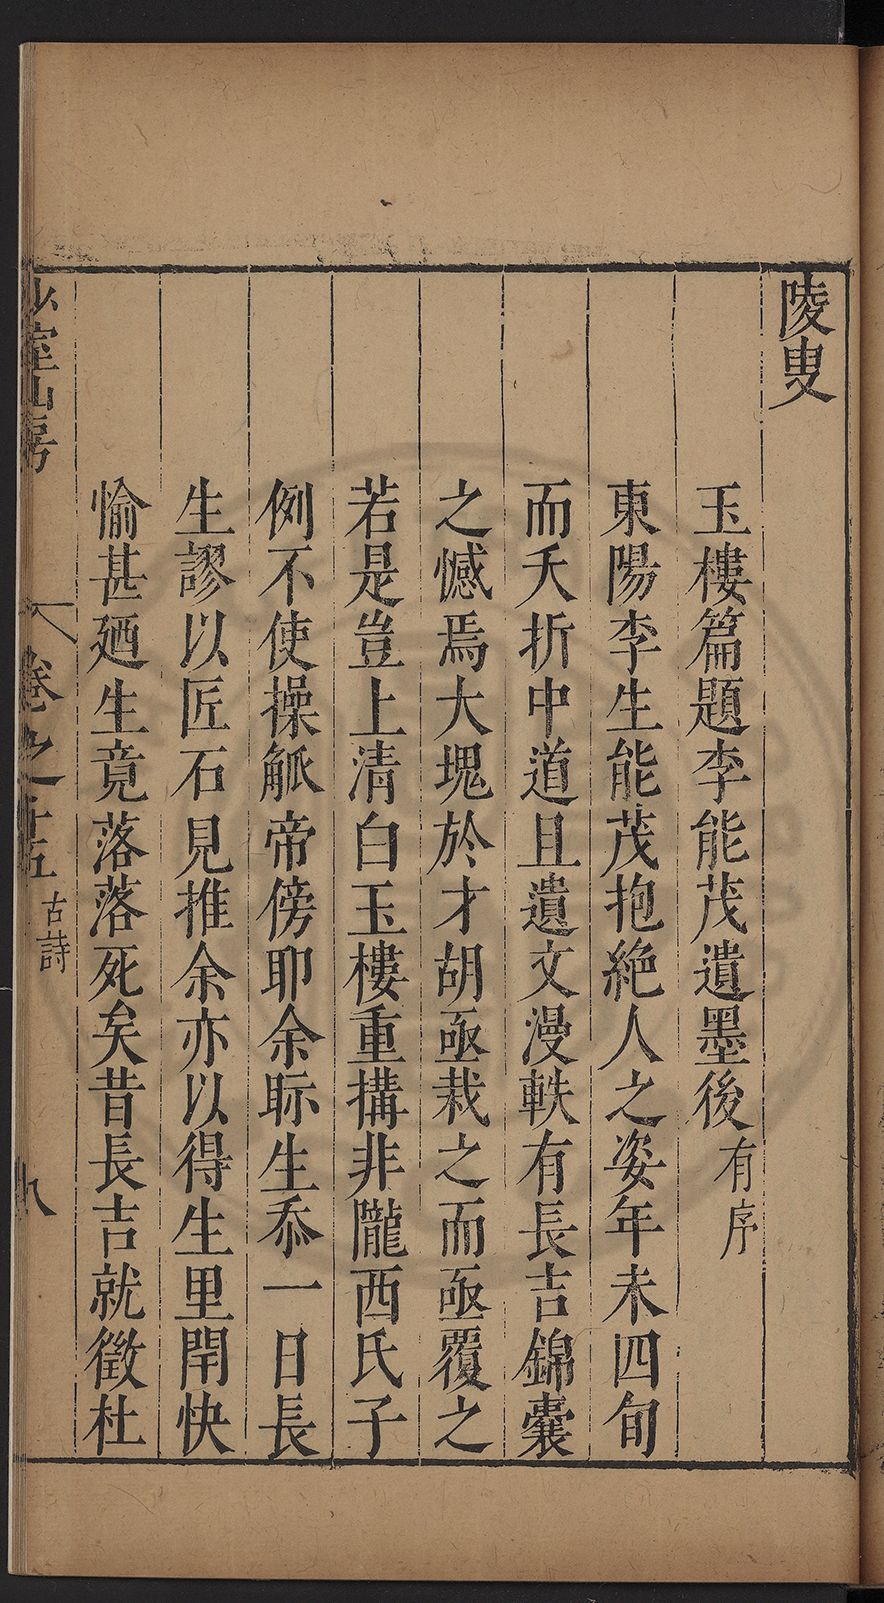 陵叟
玉樓篇題李能茂遺墨後有序
東陽李生能茂抱絶人之姿年未四旬
而夭折中道且遺文漫軼有長吉錦囊
之憾焉大塊於才胡亟栽之而亟覆之
若是豈上清白玉樓重搆非隴西氏子
例不使操觚帝傍耶余眎生忝一日長
生謬以匠石見推余亦以得生里閈快
愉甚廼生竟落落死矣昔長吉就徵杜
少室山房 卷之十五 古詩 九